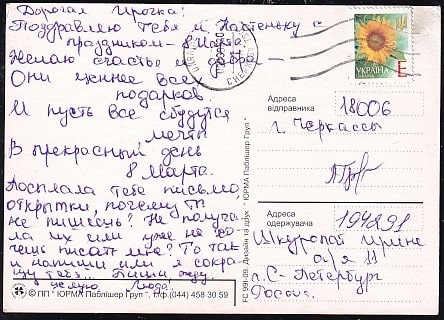 Дорогая Ирочка!
Поздравляю Тебя и Настеньку с
праздником – 8 Марта.
Желаю счастья и добра –
Они нужнее всех
подарков.
И пусть все сбудутся
мечты
В прекрасный день
8 Марта.
Послала тебе письмо,
открытки, почему ты
не пишешь? Не получа
ла их или уже не хо-
чешь писать мне? То так
и напиши или я сокра-
щу тебя. Пиши жду.
целую Люда.
© ПП " ЮРМА Паблішер Груп", т/ф.(044) 458 30 59
FC 991-09. Дизайн та друк " ЮРМА Паблішер Груп "
УКРАЇНА
Е
Адреса
відправника
18006
г. Черкассы
Адреса
одержувача
194291
Шкуропат Ирине
а/я 11
г. С-Петербург
Россия.